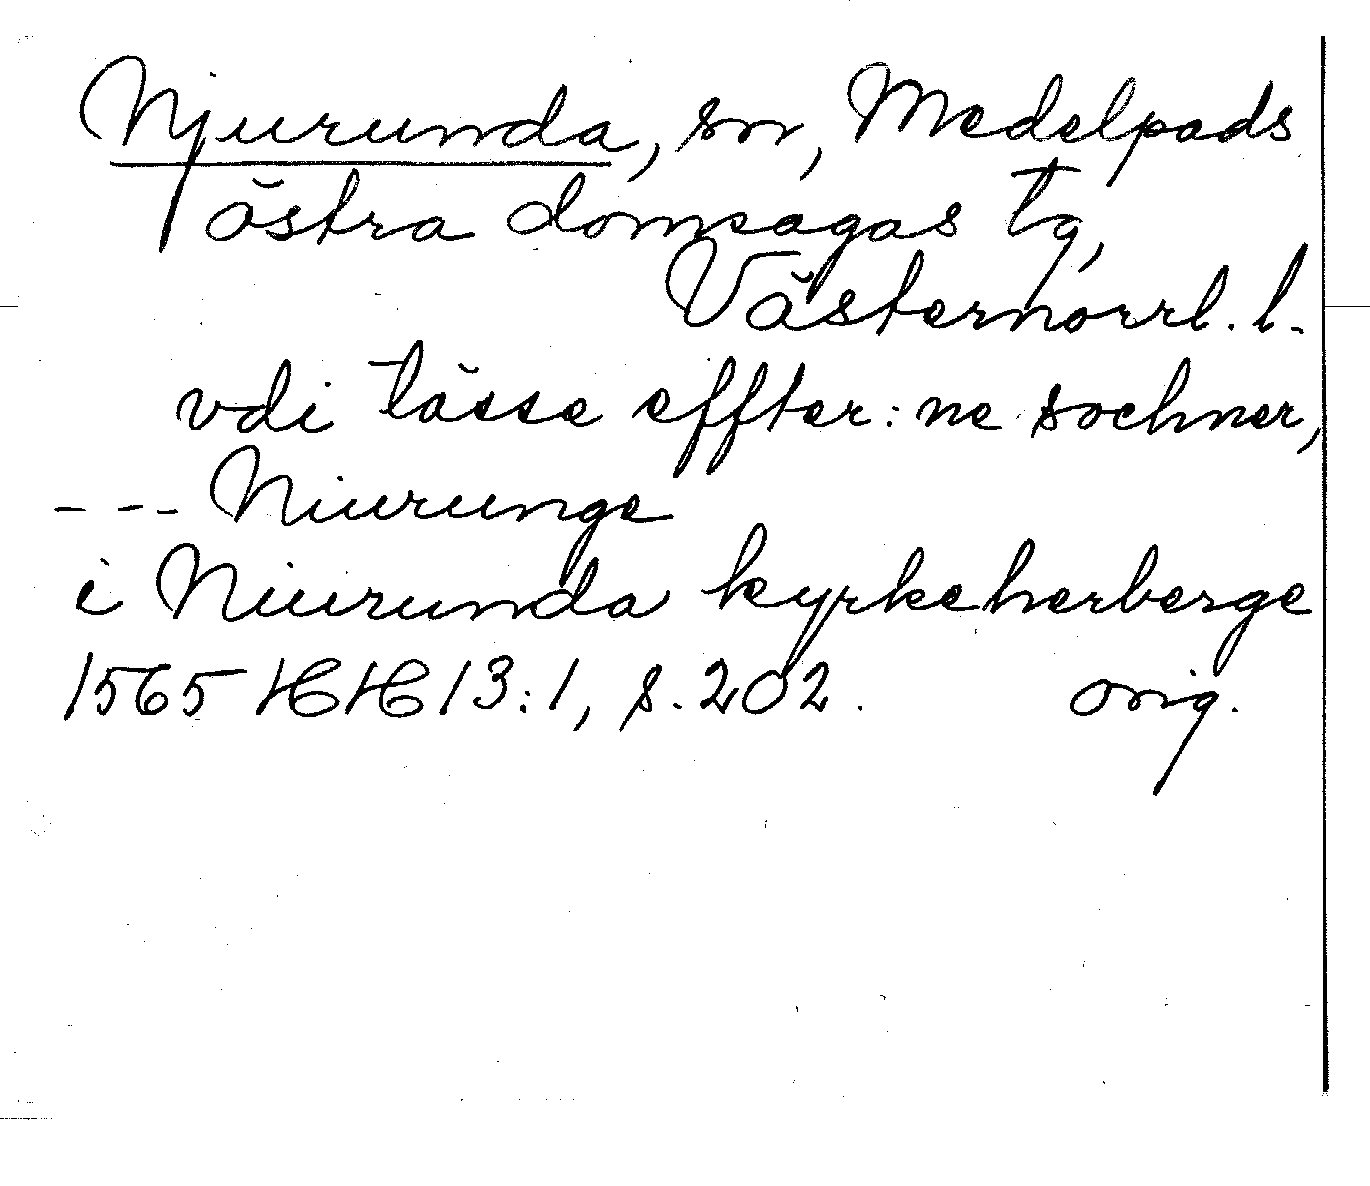 Njurunda, sn, Medelpads
östra domsagas tg,
Västernorrl. l.
vdi tässe effter:ne sochner,
--- Niurunge
i Niurunda kyrkeherberge
1565 HH 13:1, s. 202. orig.